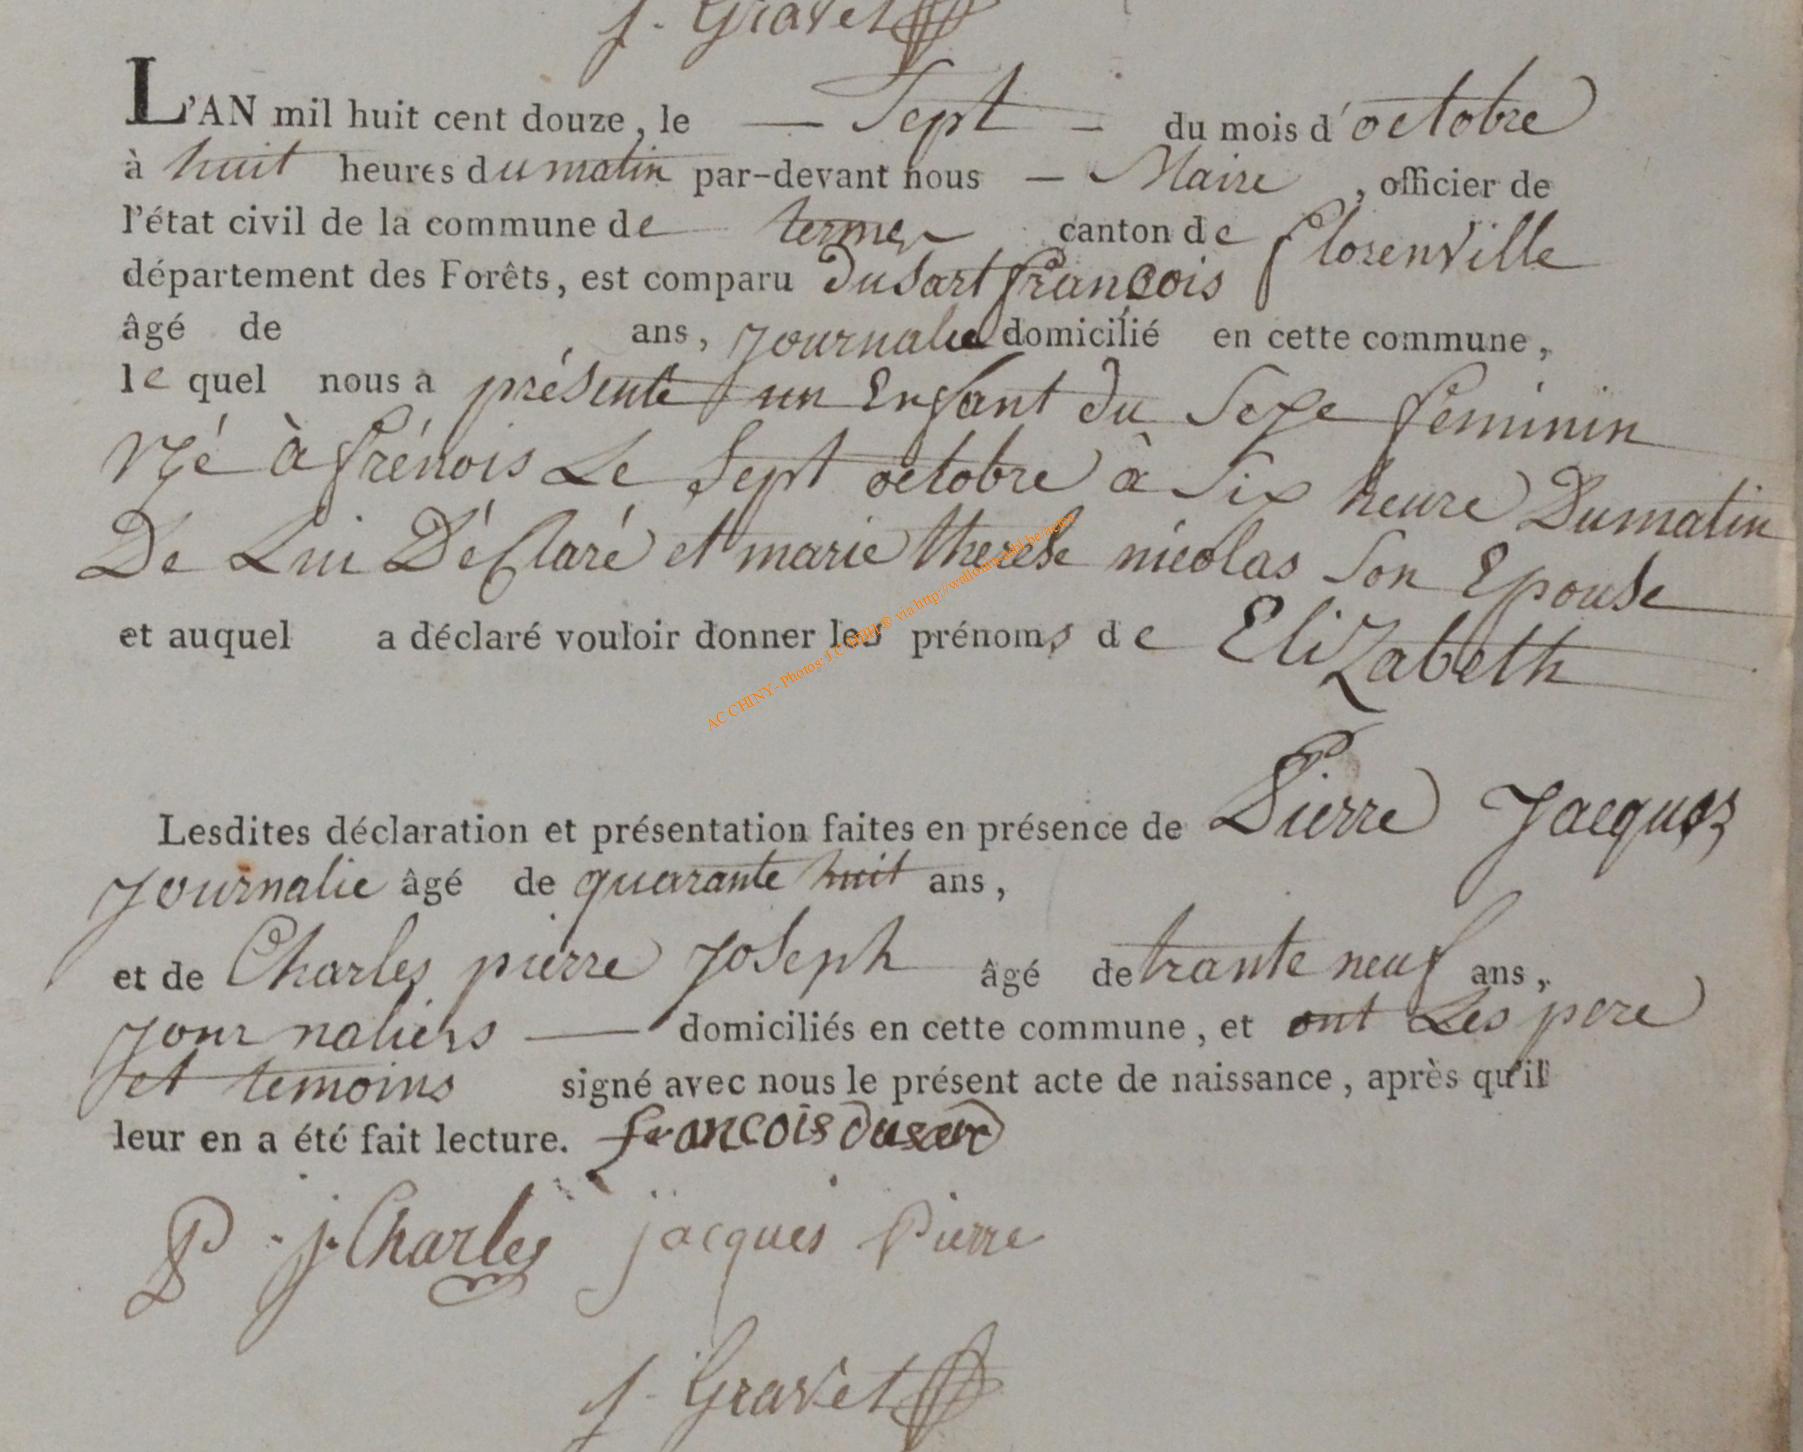 f. Gravet
L'AN mil huit cent douze, le — Sept — du mois d'octobre
à huit heures du matin par-devant nous — Maire , officier de
l'état civil de la commune de termes canton de florenville
département des Forêts, est comparu Dusart françois
âgé de ans, Journalie domicilié en cette commune,
le quel nous a présenté un Enfant du Sexe feminin
Né à frénois Le Sept octobre à Six heure Dumatin
De Lui Déclaré et marie therese nicolas Son Epouse
et auquel a déclaré vouloir donner les prénoms de Elizabeth
AC CHINY - Photos: J.C. via http://wallonica
Lesdites déclaration et présentation faites en présence de Pierre Jacques
Journalie âgé de quarante huit ans,
et de Charles pierre Joseph âgé de trante neuf ans,
Journaliers — domiciliés en cette commune, et ont Les pere
et temoins signé avec nous le présent acte de naissance, après qu'il
leur en a été fait lecture. francois dusard
P. j. Charles jacques Pierre
f. Gravet